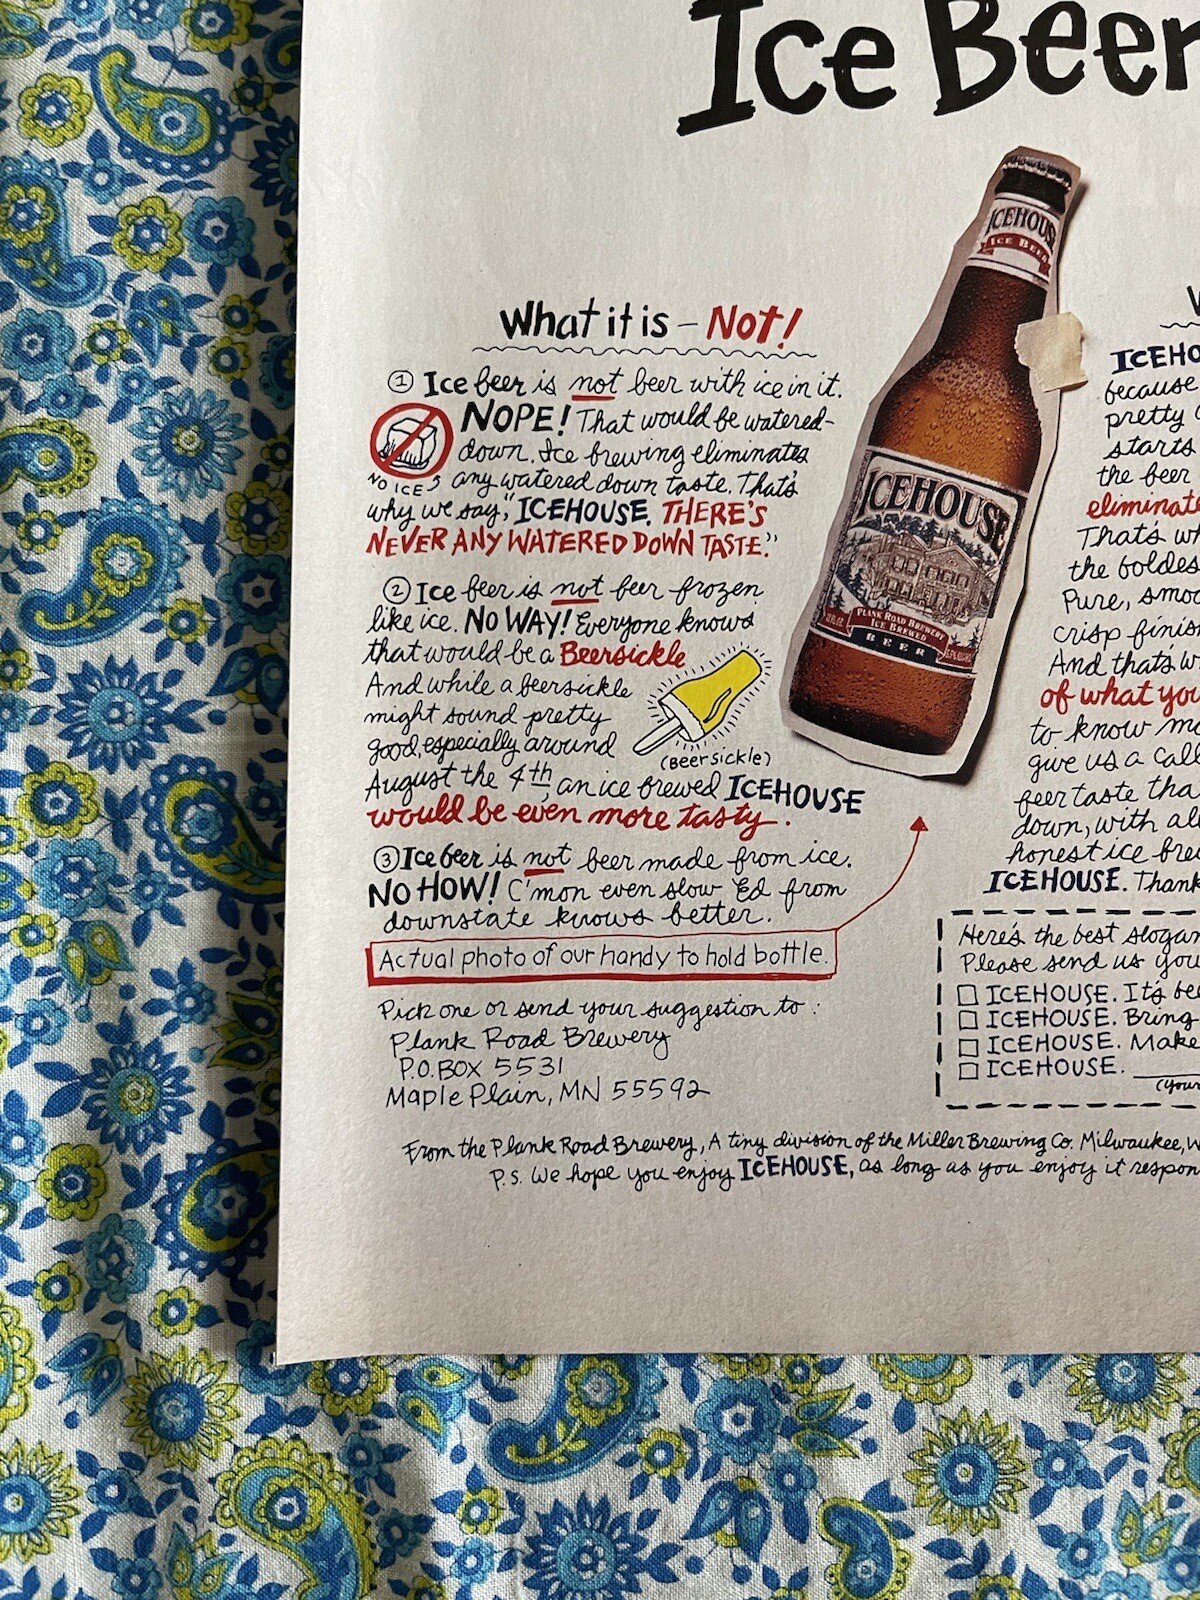 Ice Beer
What it is – Not!
① Ice beer is not beer with ice in it.
NOPE! That would be watered-
down. Ice brewing eliminates
any watered down taste. That's
NO ICE
why we say, "ICEHOUSE. THERE'S
NEVER ANY WATERED DOWN TASTE."
② Ice beer is not beer frozen
like ice. NO WAY! Everyone knows
that would be a Beersickle
And while a beersickle
might sound pretty
good, especially around
(Beersickle)
August the 4th, an ice brewed ICEHOUSE
would be even more tasty.
③ Ice beer is not beer made from ice.
NO HOW! C'mon even slow Ed from
downstate knows better.
Actual photo of our handy to hold bottle.
Pick one or send your suggestion to:
Plank Road Brewery
P.O. BOX 5531
Maple Plain, MN 55592
ICEHOUSE
ICE BEER
ICEHOUSE
PLANK ROAD BREWERY
ICE BREWED
BEER
ICEHO
because
pretty
starts
the beer
eliminate
That's wh
the boldes
Pure, smoo
crisp finis
And that's w
of what you
to know mo
give us a call
beer taste tha
down, with al
honest ice bre
ICEHOUSE. Thank
Here's the best slogan
Please send us you
☐ ICEHOUSE. It's be
☐ ICEHOUSE. Bring
☐ ICEHOUSE. Make
☐ ICEHOUSE.
(your
From the Plank Road Brewery, A tiny division of the Miller Brewing Co. Milwaukee, W
P.S. We hope you enjoy ICEHOUSE, as long as you enjoy it respon